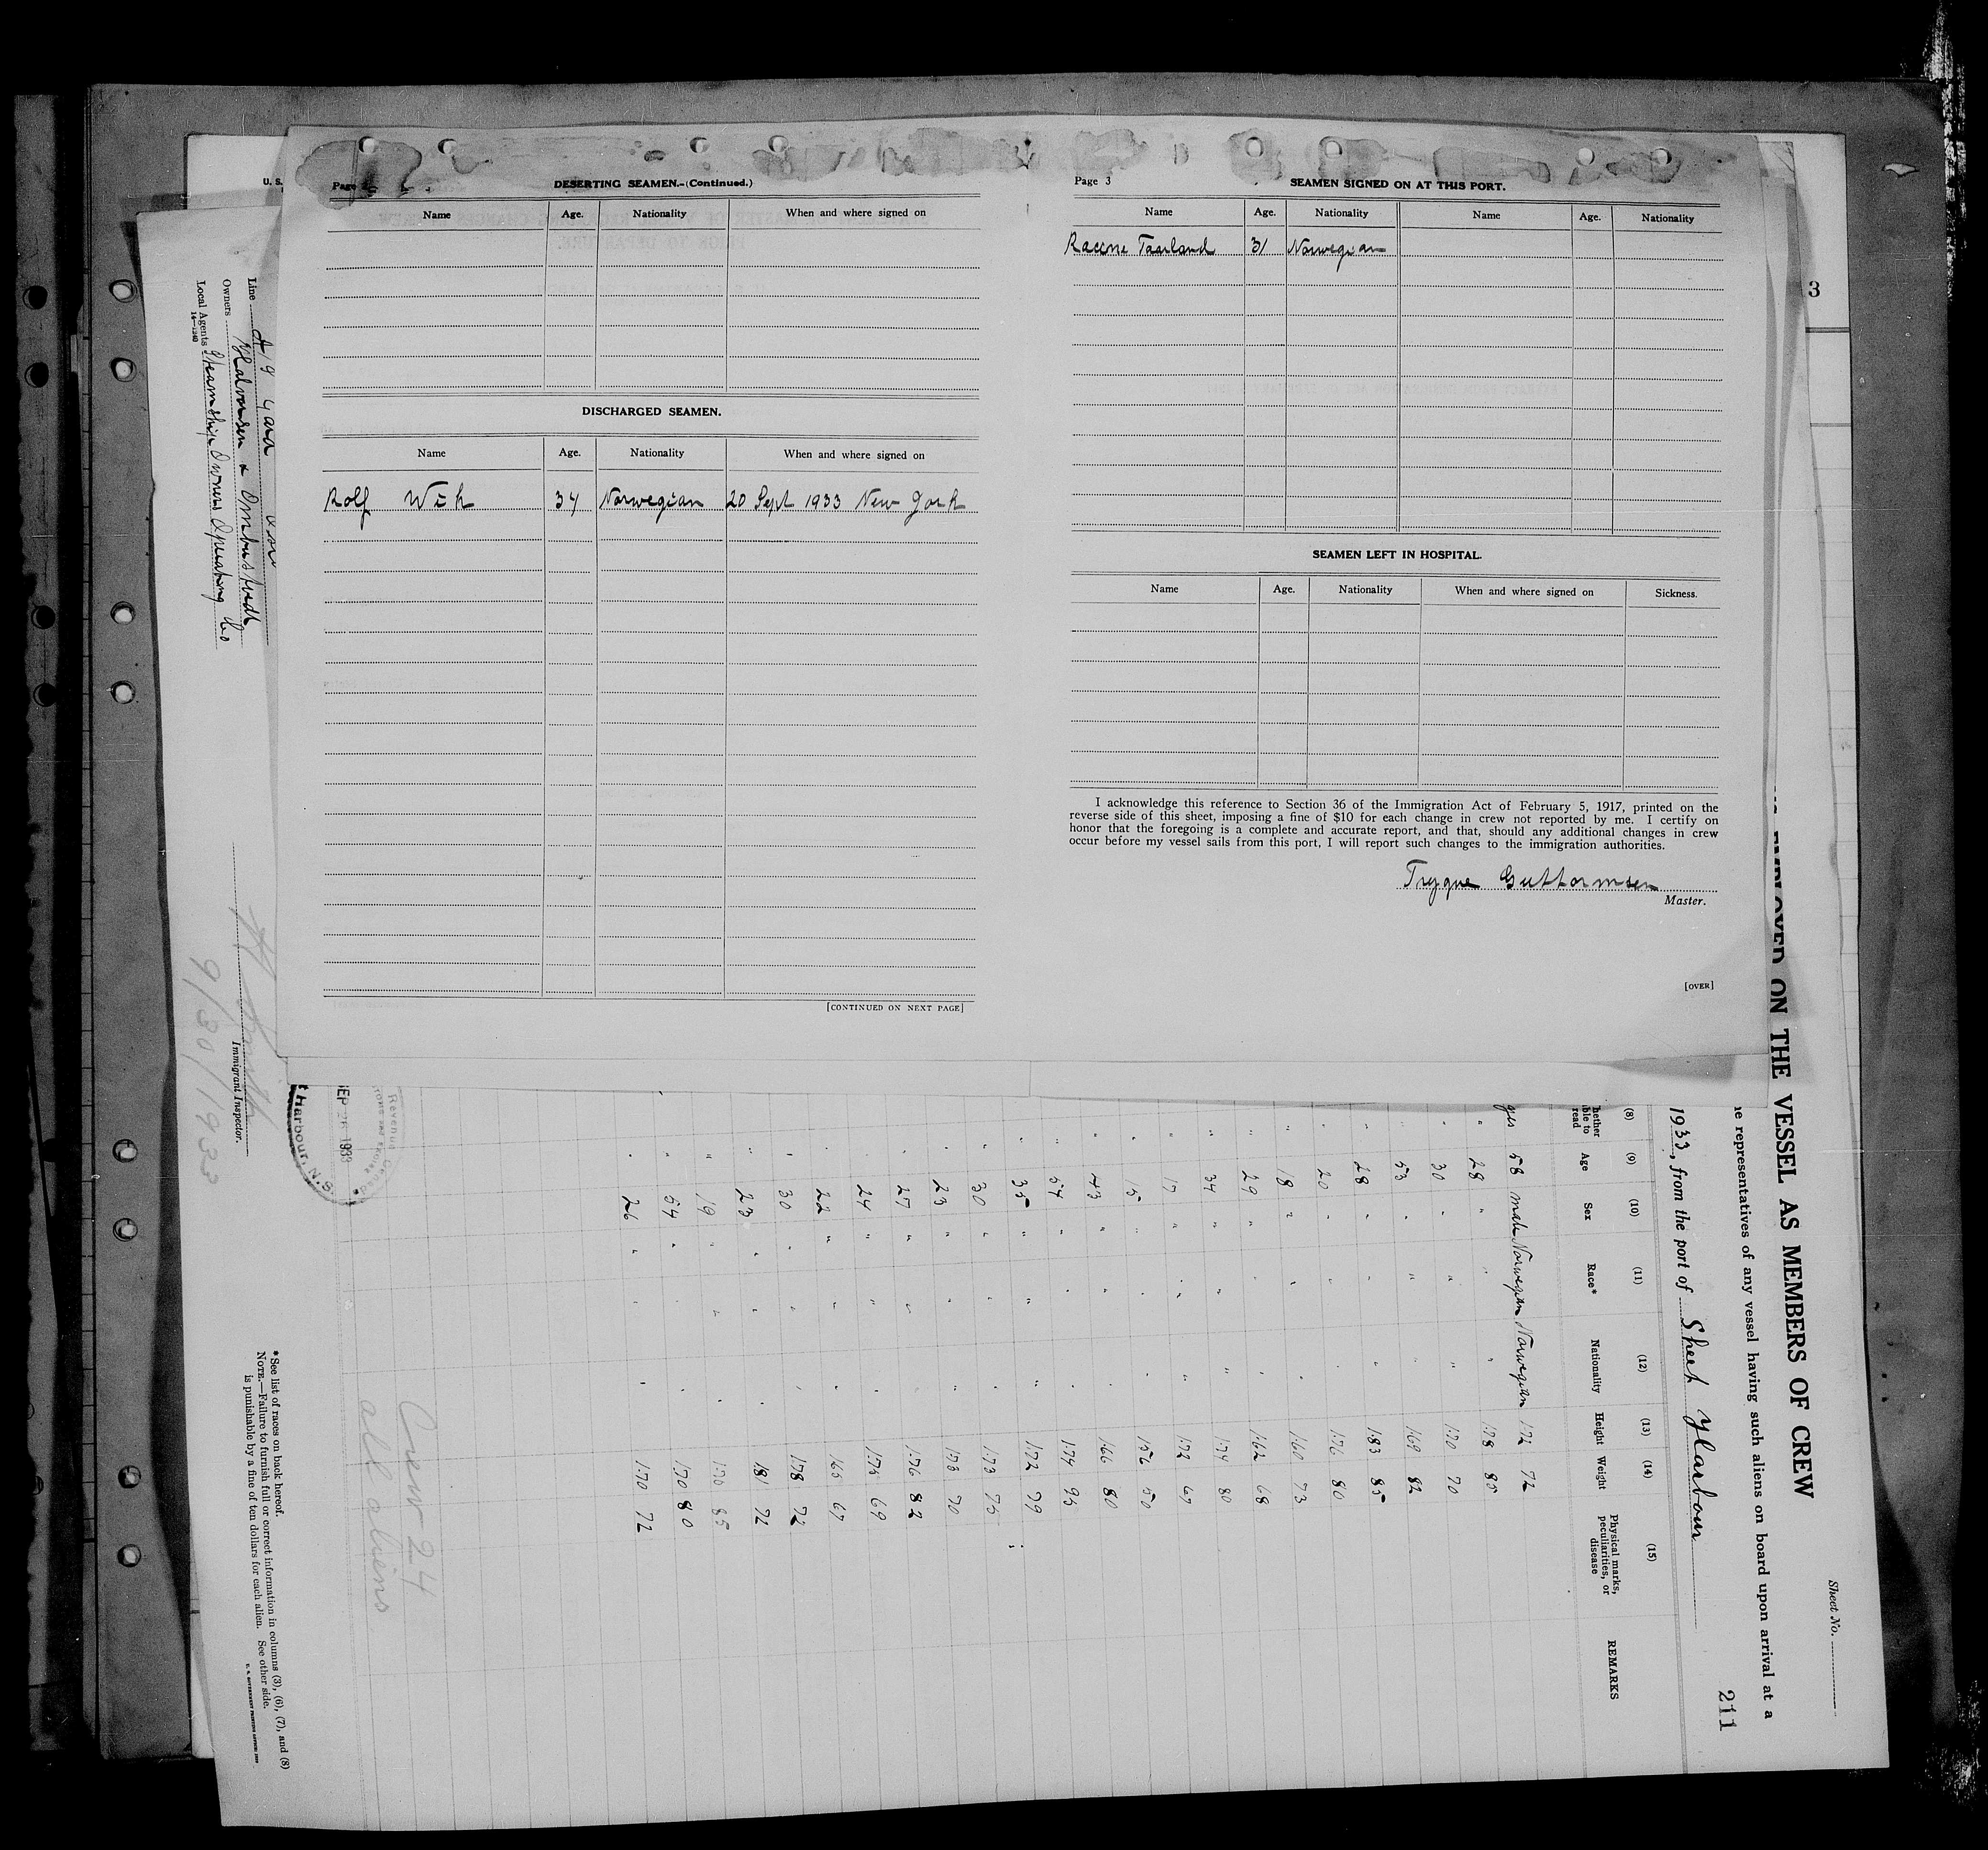 Page
DESERTING SEAMEN.-(Continued.)
Name Age. Nationality When and where signed on
DISCHARGED SEAMEN.
Name Age. Nationality When and where signed on
Rolf Wik 34 Norwegian 20 Sept 1933 New York
[CONTINUED ON NEXT PAGE]
Page 3
SEAMEN SIGNED ON AT THIS PORT.
Name Age. Nationality Name Age. Nationality
Taarland 31 Norwegian
SEAMEN LEFT IN HOSPITAL.
Name Age. Nationality When and where signed on Sickness.
I acknowledge this reference to Section 36 of the Immigration Act of February 5, 1917, printed on the
reverse side of this sheet, imposing a fine of $10 for each change in crew not reported by me. I certify on
honor that the foregoing is a complete and accurate report, and that, should any additional changes in crew
occur before my vessel sails from this port, I will report such changes to the immigration authorities.
Trygve Guttormsen
Master.
[OVER]
U. S.
3
Sheet No.
ON THE VESSEL AS MEMBERS OF CREW
representatives of any vessel having such aliens on board upon arrival at a
211
1933, from the port of Sheet Harbour
(8) (9) (10) (11) (12) (13) (14) (15)
read Age Sex Race* Nationality Height Weight Physical marks, peculiarities, or disease REMARKS
yes 58 male Norwegian Norwegian 172 72
" 28 " " " 178 85
" 30 " " " 170 70
" 53 " " " 169 82
" 28 " " " 183 85
" 20 " " " 176 80
" 18 " " " 160 73
" 29 " " " 162 68
" 34 " " " 174 80
" 17 " " " 172 67
" 15 " " " 156 50
" 43 " " " 166 80
" 54 " " " 174 95
" 35 " " " 172 79
" 30 " " " 173 75
" 23 " " " 173 70
" 27 " " " 176 82
" 24 " " " 175 69
" 22 " " " 165 67
" 30 " " " 178 72
" 23 " " " 181 72
" 19 " " " 170 85
" 54 " " " 170 80
" 26 " " " 170 72
Crew 24
all aliens
SEP 26 1933
Harbour, N.S.
*See list of races on back hereof.
NOTE.—Failure to furnish full or correct information in columns (3), (6), (7), and (8)
is punishable by a fine of ten dollars for each alien. See other side.
Line
Owners Halvorsen &
Local Agents Steamship Owners Operating Co
14—1240
Immigrant Inspector.
9/30/1933